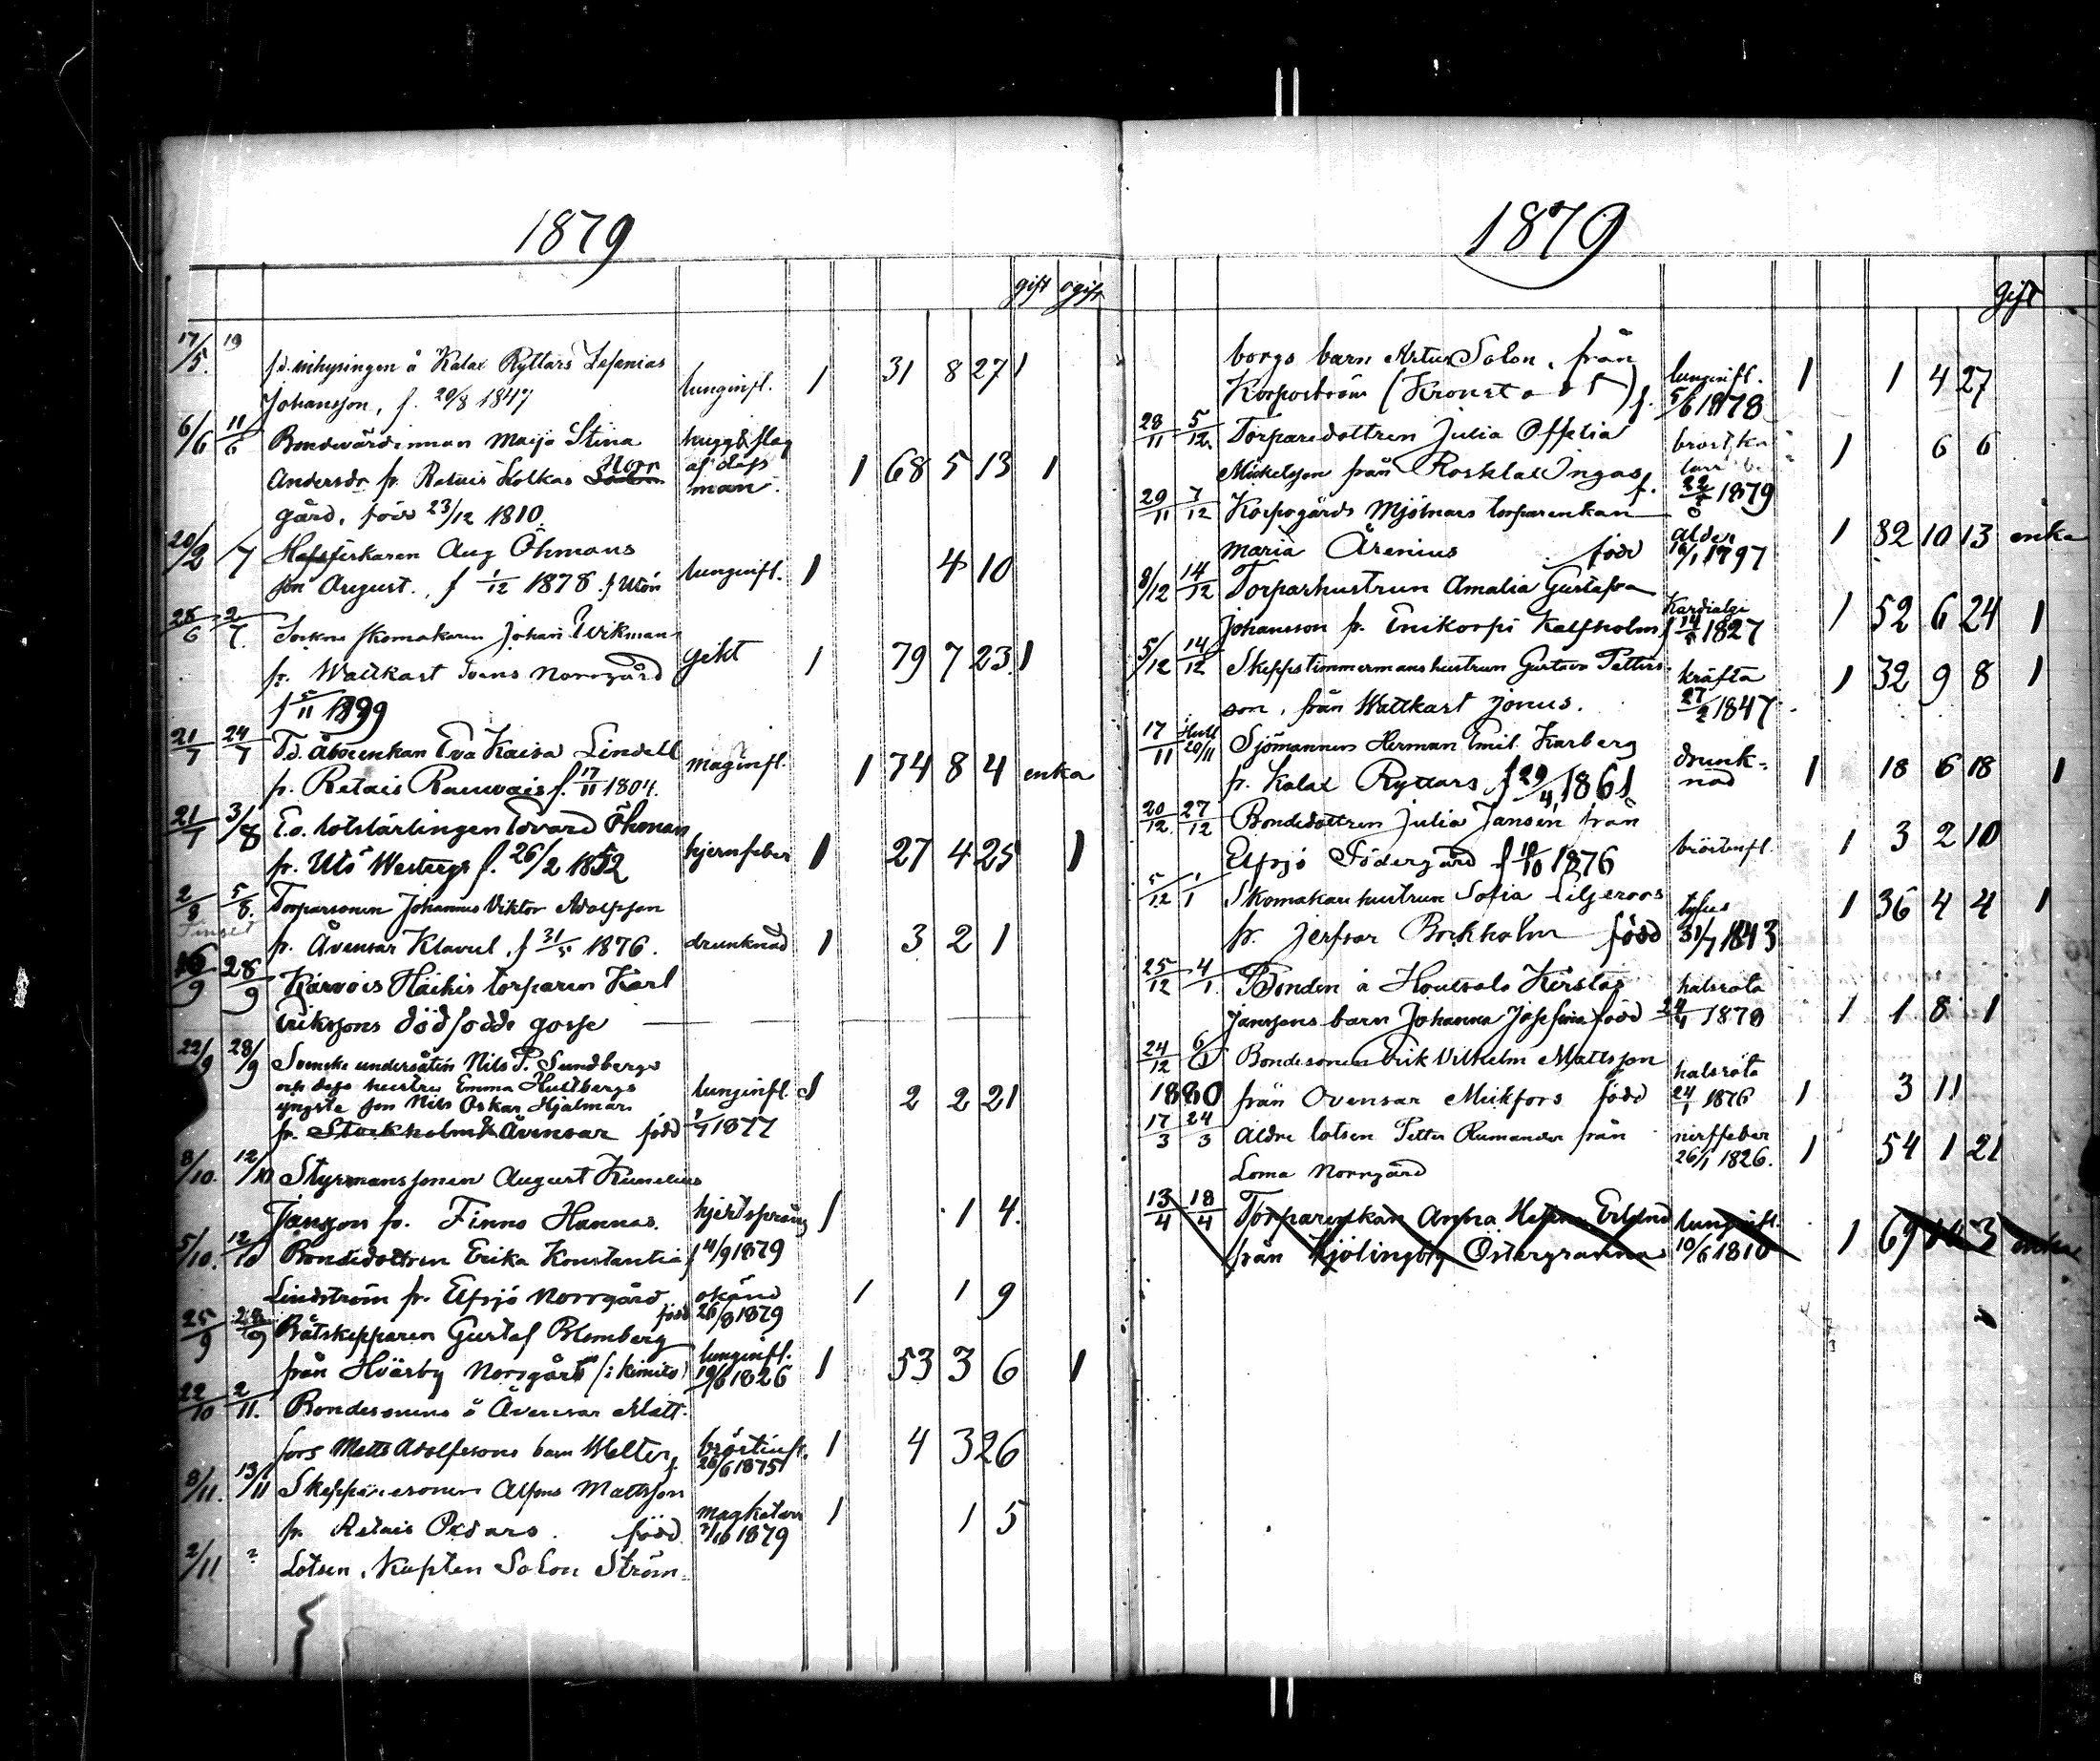 1879
gift ogift
17/5. 19 fd. inhysingen å Kalax Ryttars Zefanias
Johansson, f. 20/8 1847 lunginfl. 1 31 8 27 1
6/6 11/6 Bondevärdinnan Maja Stina hugg & slag
Andersdr fr. Retais Kolkas Södra Norr af dess man. 1 68 5 13 1
gård, född 23/12 1810.
20/2 /7 Aug Öhmans
son August., f 1/12 1878. f Utön lunginfl. 1 4 10
28/6 2/7. Sockne skomakaren Johan Wikman
fr. Wattkast Norrgård gikt 1 79 7 23 1
f 5/11 1899
21/7 24/7 F.d. Åboenkan Eva Kaisa Lindell maginfl. 1 74 8 4 enka
fr. Retais Rauvais f. 17/11 1804.
21/7 3/8 E.o. lotslärlingen Edvard Öhman
fr. Utö Westergs f. 26/2 1852 hjernfeber 1 27 4 25 1
2/8 5/8. Torparsonen Johannes Viktor Adolfsson
fr. Åvensar Klavul, f 31/5 1876. drunknad 1 3 2 1
16/9 28/9 Kärvois Häikis torparen Karl
Erikssons dödfödde gosse
22/9 28/9 Svenske undersåten Nils P. Sundbergs
och dess hustru Emma Hultbergs
yngste son Nils Oskar Hjalmar lunginfl. 1 2 2 21
fr. Stockholm Åvensar född 1/7 1877
8/10. 12/10 Styrmanssonen August Kunelius
Jansson fr. Finno Hannas. hjertsprång 1 1 4.
5/10. 12/10 Bondedottren Erika Konstantia f 4/9 1879
Lindström fr. Elfsjö Norrgård okänd 1 1 9
född 26/8 1879
25/9 28/9 Båtskepparen Gustaf Blomberg
från Hvärby Norrgård (: Kimito) lunginfl. 19/6 1826 1 53 3 6 1
22/10 2/11. Bondesonens å Åvensar Matt-
fors Matts Adolfssons barn Welter, f. bröstinfl. 26/6 1875 1 4 3 26
8/11. 13/11 Skepparesonen Alfons Mattsson
fr. Retais Pedars. född magkatarr 3/10 1879 1 1 5
2/11 ? Lotsen, Kapten Solon Ström-
1879
gift
borgs barn Artur Solon, från
Korpoström (Kronst) f. lunginfl. 5/6 1878 1 1 4 27
28/11 5/12. Torparedottren Julia Offelia
Mickelsson från Rosklax Ingas f. 1879 1 6 6
29/11 7/12 Korpogårds Mjölnars torparenkan
Maria Årenius född ålder 16/1 1797 1 82 10 13 enka
8/12 14/12 Torparhustrun Amalia Gustafva
Johansson fr. Enikorpi Kalfholm f Kardialgi 14/5 1827 1 52 6 24 1
5/12 14/12 Skeppstimmermans hustrun Gustava Petters-
son, från Wattkast Jonus. kräfta 27/2 1847 1 32 9 8 1
17/11 Hull 20/11 Sjömannen Herman Emil Karberg
fr. Kalax Ryttars f 29/4 1861 drunk-nad 1 18 6 18 1
20/12. 27/12 Bondedottren Julia Jansen från
Elfsjö Södergård f 10/10 1876 bröstinfl. 1 3 2 10
5/12 1/1 Skomakarhustrun Sofia Liljeroos
fr. Jerfsor Bockholm född tyfus 31/7 1843 1 36 4 4 1
25/12 4/1. Bonden å Houtsala Kirstas
Janssons barn Johanna Josefina född halsröta 24/4 1878 1 1 8 1
24/12 6/1 Bondesonen Erik Vilhelm Mattsson
1880 från Ovensar Mickfors född halsröta 24/1 1876 1 3 11
17/3 24/3 Äldre lotsen Petter Rumander från nerffeber
Loma Norrgård 26/1 1826. 1 54 1 21
13/4 18/4 Torparenkan Anna Helena Erlund lunginfl.
från Kjölingby Östergranna 10/6 1810 1 69 10 3 enka